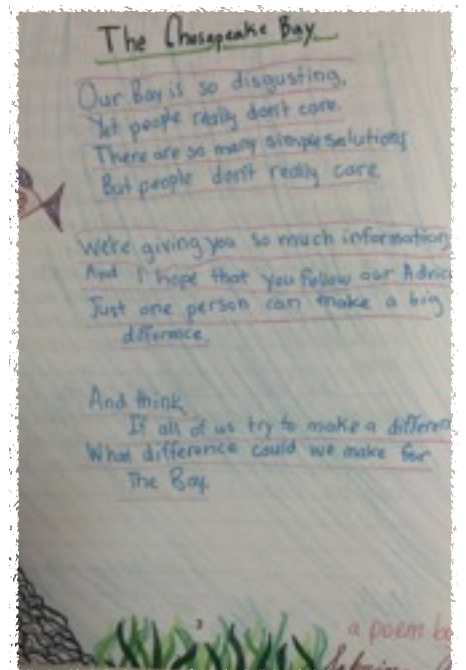 The Chesapeake Bay
Our Bay is so disgusting,
Yet people really don't care.
There are so many simple solutions
But people don't really care
We're giving you so much information
And I hope that you follow our Advic
Just one person can make a big
difference.
And think,
If all of us try to make a differen
What difference could we make for
The Bay.
3
a poem by